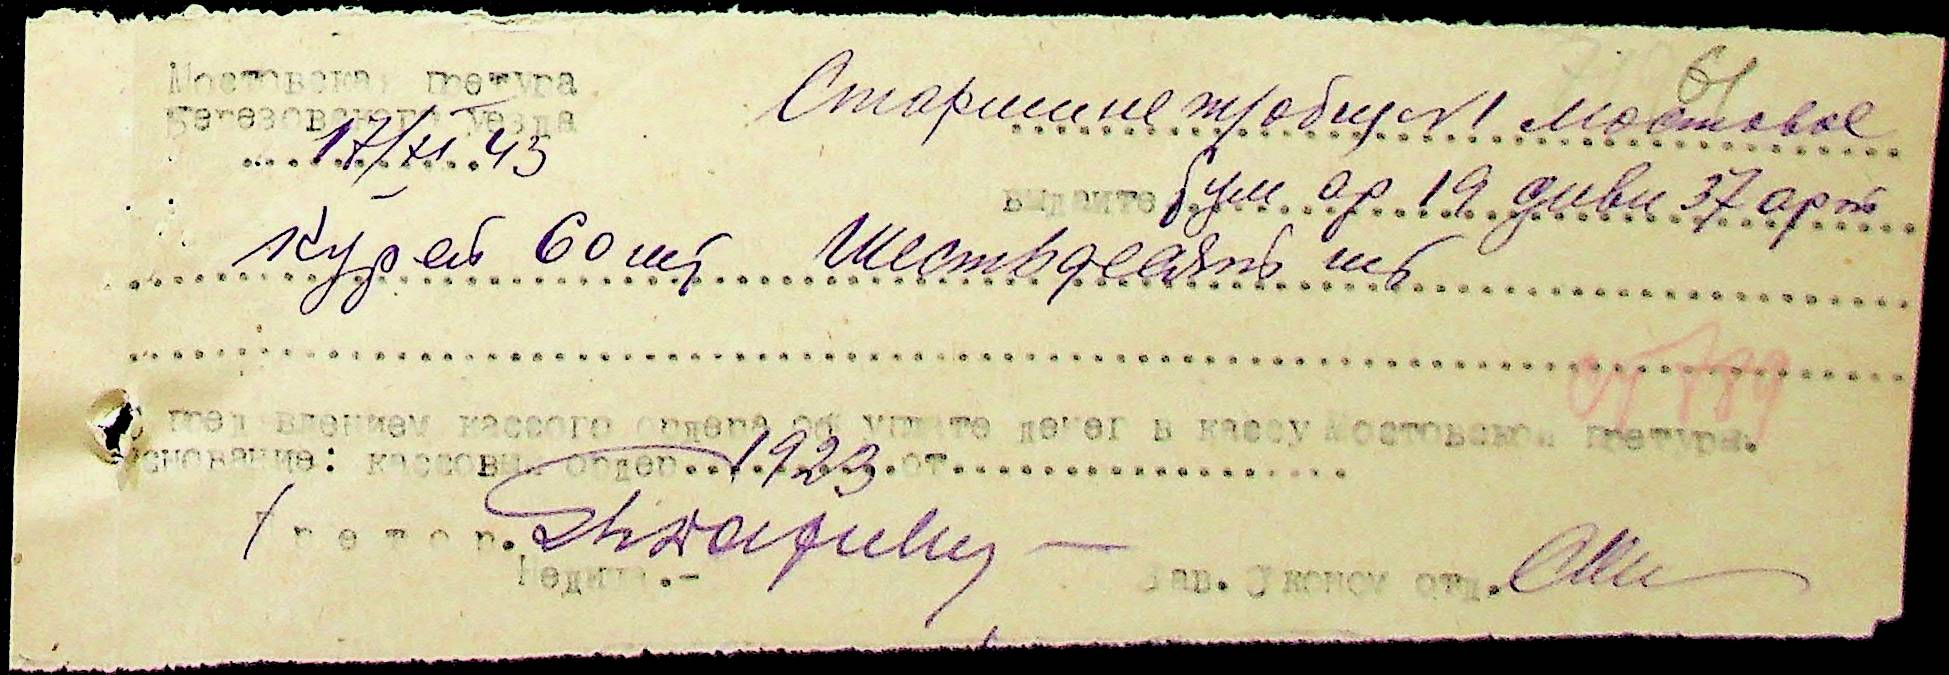 Мостовская претура
Березовского уезда
17/XI 43
61
Старшине тробщ N 1 Мостовое
Выдайте рум ар 19 диви 37 арт
Курей 60 шт Шестьдесять шт
789
С пред'влением кассого ордера об уплате денег в кассу Мостовской претуры.
Основание: кассовый ордер 1923 от
Претор.
Зав. Эконом отд.